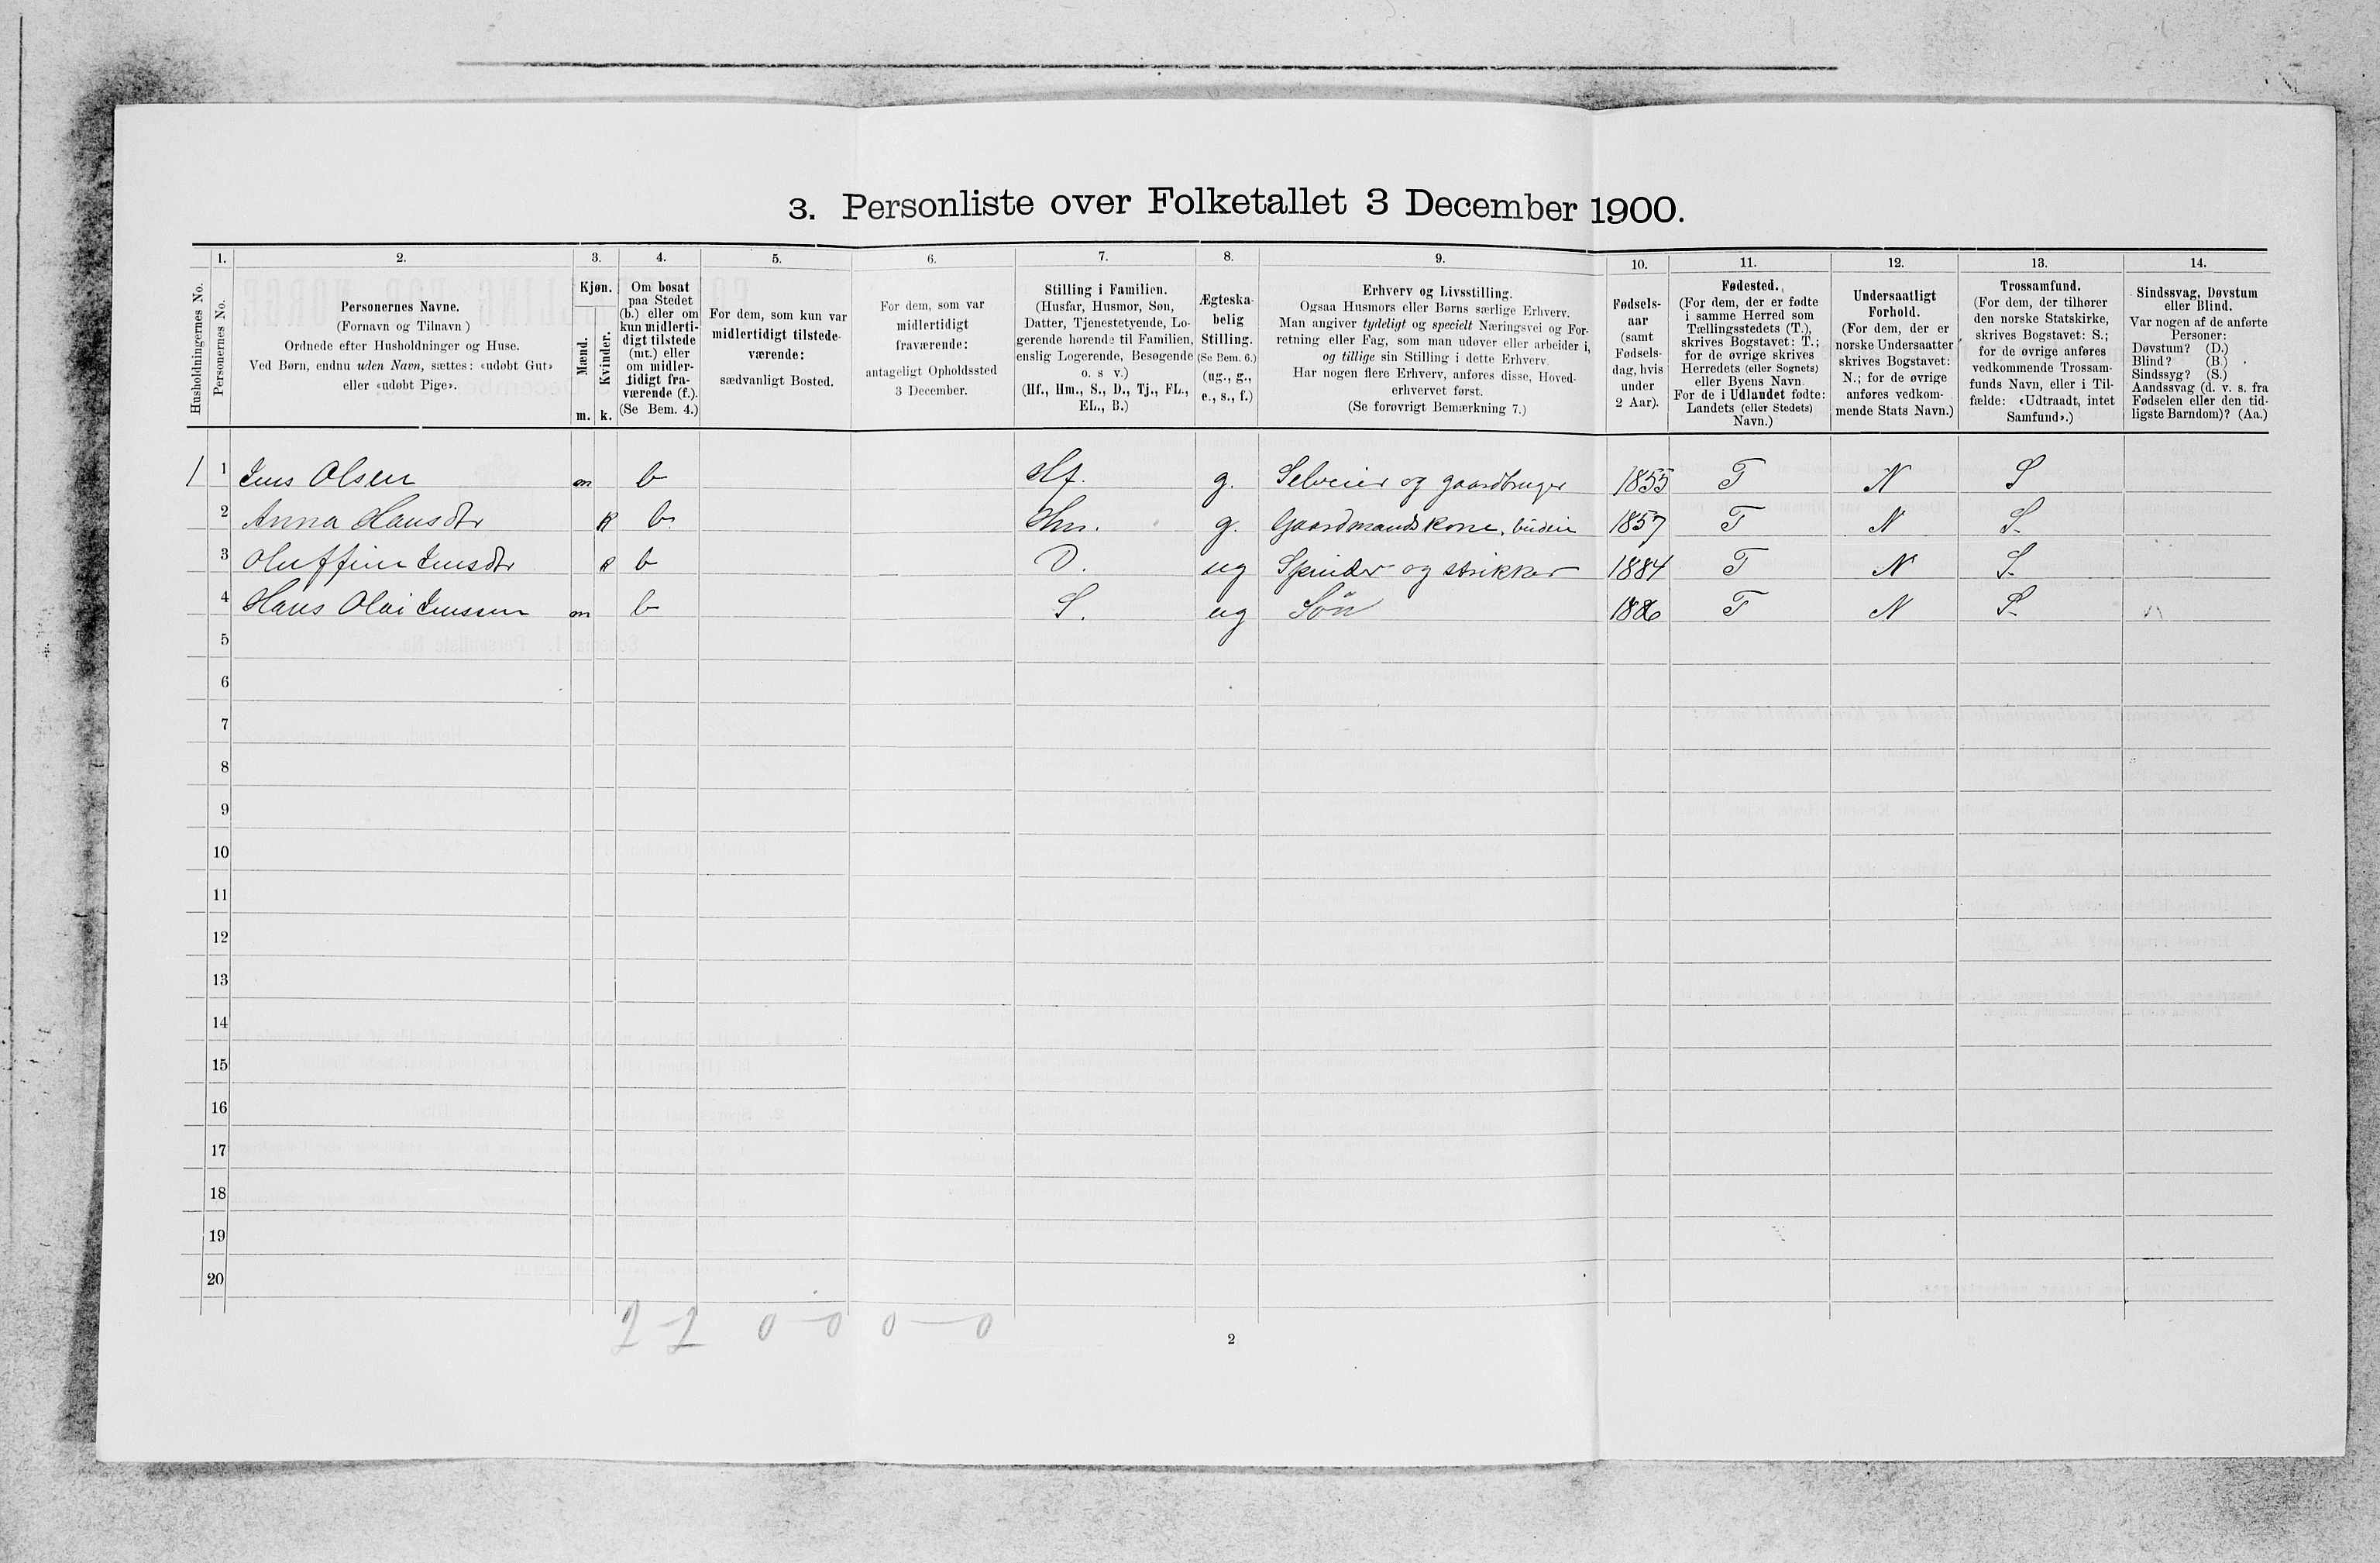 3. Personliste over Folketallet 3 December 1900.
Husholdningernes No.
1.
Personernes No.
2.
Personernes Navne.
(Fornavn og Tilnavn )
Ordnede efter Husholdninger og Huse.
Ved Børn, endnu uden Navn, sættes: «udøbt Gut»
eller «udøbt Pige».
3.
Kjøn.
Mænd.
m.
Kvinder.
k.
4.
Om bosat
paa Stedet
(b.) eller om
kun midlerti-
digt tilstede
(mt.) eller
om midler-
tidigt fra-
værende (f.).
(Se Bem. 4.)
5.
For dem, som kun var
midlertidigt tilstede-
værende:
sædvanligt Bosted.
6.
For dem, som var
midlertidigt
fraværende:
antageligt Opholdssted
3 December.
7.
Stilling i Familien.
(Husfar, Husmor, Søn,
Datter, Tjenestetyende, Lo-
gerende hørende til Familien,
enslig Logerende, Besøgende
o. s v.)
(Hf., Hm., S., D., Tj., FL.,
EL., B.)
8.
Ægteska-
belig
Stilling.
(Se Bem. 6.)
(ug., g.,
e., s., f.)
9.
Erhverv og Livsstilling.
Ogsaa Husmors eller Børns særlige Erhverv.
Man angiver tydeligt og specielt Næringsvei og For-
retning eller Fag, som man udøver eller arbeider i,
og tillige sin Stilling i dette Erhverv.
Har nogen flere Erhverv, anføres disse, Hoved-
erhvervet først.
(Se forøvrigt Bemærkning 7.)
10.
Fødsels-
aar
(samt
Fødsels-
dag, hvis
under
2 Aar).
11.
Fødested.
(For dem, der er fødte
i samme Herred som
Tællingsstedets (T.),
skrives Bogstavet: T.;
for de øvrige skrives
Herredets (eller Sognets)
eller Byens Navn.
For de i Udlandet fødte:
Landets (eller Stedets)
Navn.)
12.
Undersaatligt
Forhold.
(For dem, der er
norske Undersaatter
skrives Bogstavet:
N.; for de øvrige
anføres vedkom-
mende Stats Navn.)
13.
Trossamfund.
(For dem, der tilhører
den norske Statskirke,
skrives Bogstavet: S.;
for de øvrige anføres
vedkommende Trossam-
funds Navn, eller i Til-
fælde: «Udtraadt, intet
Samfund».)
14.
Sindssvag, Døvstum
eller Blind.
Var nogen af de anførte
Personer:
Døvstum? (D.)
Blind? (B.)
Sindssyg? (S.)
Aandssvag (d. v. s. fra
Fødselen eller den tid-
ligste Barndom)? (Aa.)
1 1 Jens Olsen m b Hf. g. Selveier og gaardbruger 1855 T N S
2 Anna Hansdtr k b. Hm. g. Gaardmandskone, budeie 1857 T N S.
3 Oluffine Jensdtr k b D. ug Spinder og strikker 1884 T N S.
4 Hans Olai Jenssen m b S. ug Søn 1886 T N S.
5
6
7
8
9
10
11
12
13
14
15
16
17
18
19
20
0 0 0 0
2